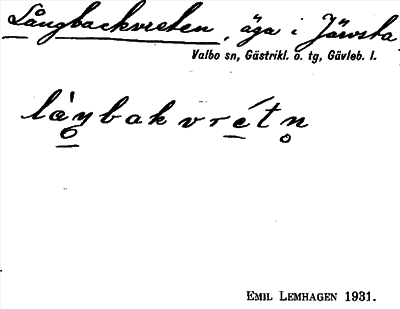 Långbackvreten, äga i Järvsta
Valbo sn, Gästrikl. o. tg, Gävleb. l.
lå̀ŋbakvrétn̥
EMIL LEMHAGEN 1931.